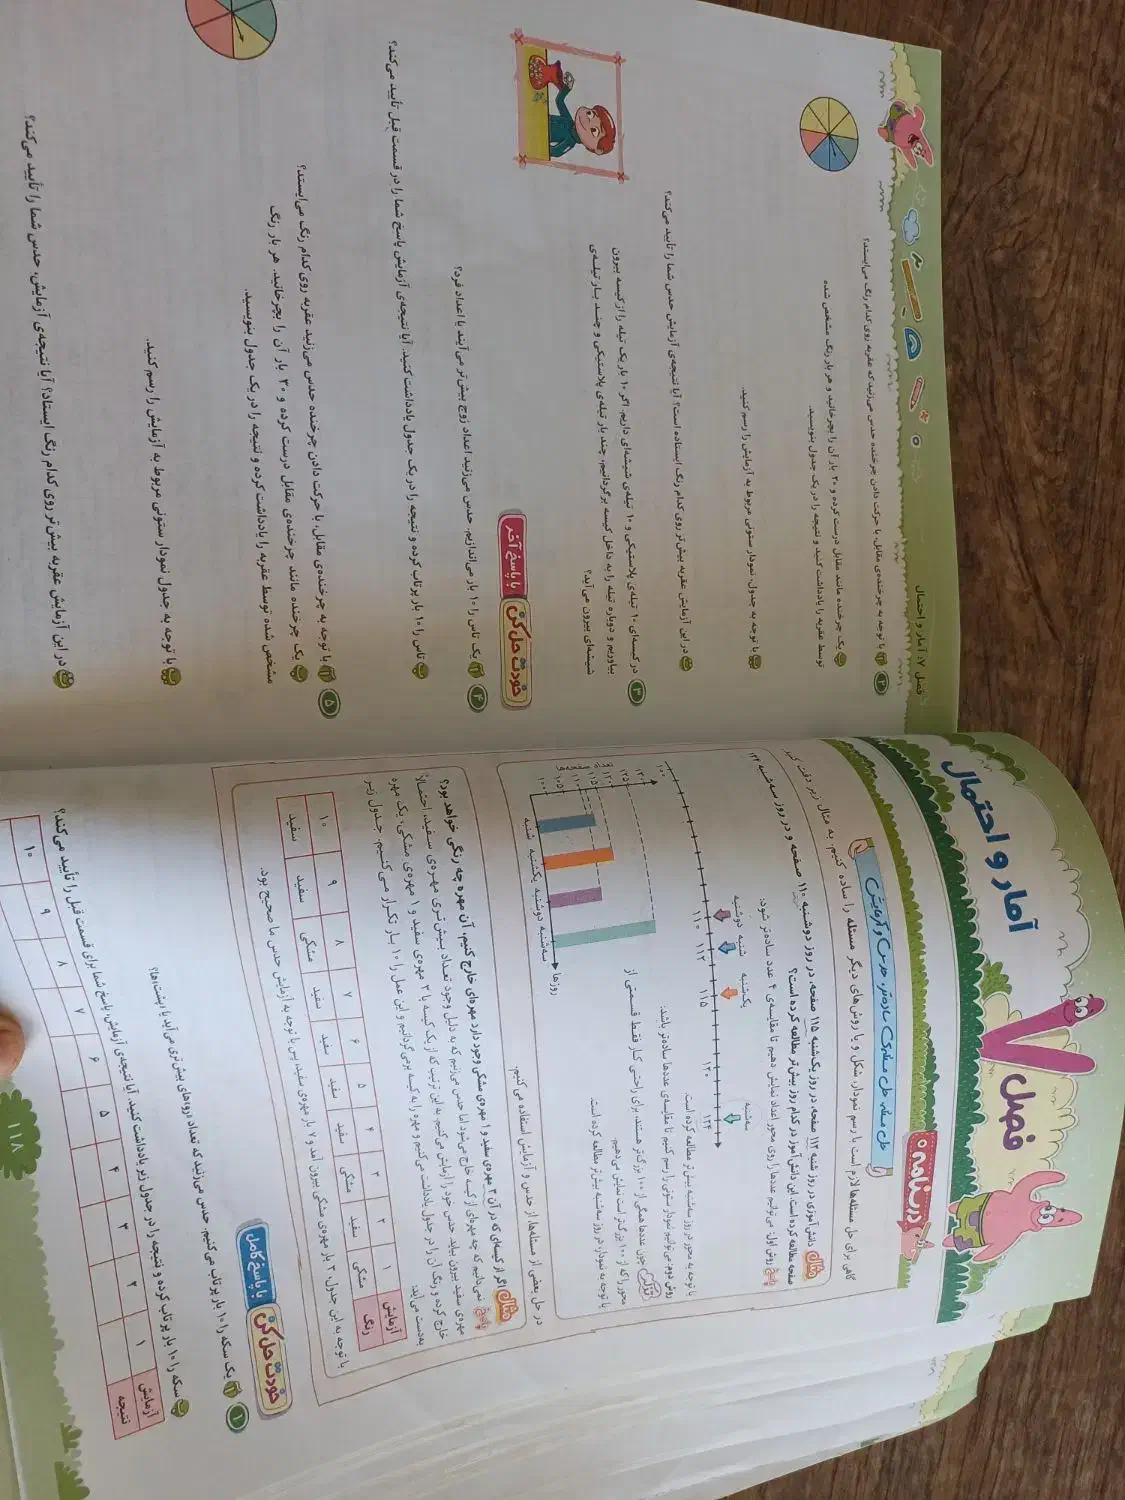 فصل ۷
آمار و احتمال
درسنامه
حل مسئله، حل مسئله‌ی ساده‌تر، حدس و آزمایش
گاهی برای حل مسئله‌ها لازم است با رسم نمودار، شکل و یا روش‌های دیگر مسئله را ساده کنیم. به مثال زیر دقت کنید
مثال دانش‌آموزی در روز شنبه ۱۱۲ صفحه، در روز یک‌شنبه ۱۱۵ صفحه، در روز دوشنبه ۱۱۰ صفحه و در روز سه‌شنبه ۱۲۴
صفحه مطالعه کرده است. این دانش‌آموز در کدام روز بیش‌تر مطالعه کرده است؟
پاسخ روش اول: می‌توانیم عددها را روی محور اعداد نمایش دهیم تا مقایسه‌ی ۴ عدد ساده‌تر شود.
دوشنبه شنبه یک‌شنبه سه‌شنبه
۱۰۰ ۱۱۰ ۱۱۲ ۱۱۵ ۱۲۰ ۱۲۴
با توجه به محور در روز سه‌شنبه بیش‌تر مطالعه کرده است.
روش دوم: می‌توانیم نمودار ستونی را رسم کنیم تا مقایسه‌ی عددها ساده‌تر باشد.
تذکر: چون عددها همگی از ۱۰۰ بزرگ‌تر هستند، برای راحتی کار فقط قسمتی از
محور را که از ۱۰۰ بزرگ‌تر است نمایش می‌دهیم.
با توجه به نمودار، در روز سه‌شنبه بیش‌تر مطالعه کرده است.
تعداد صفحه‌ها
۱۳۰
۱۲۵
۱۲۰
۱۱۵
۱۱۰
۱۰۵
۱۰۰
شنبه یکشنبه دوشنبه سه‌شنبه
روزها
در حل بعضی از مسئله‌ها، از حدس و آزمایش استفاده می‌کنیم.
مثال اگر از کیسه‌ای که در آن ۳ مهره‌ی سفید و ۱ مهره‌ی مشکی وجود دارد مهره‌ای خارج کنیم، آن مهره چه رنگی خواهد بود؟
پاسخ نمی‌دانیم که چه مهره‌ای از کیسه خارج می‌شود اما حدس می‌زنیم که به دلیل وجود تعداد بیش‌تری مهره‌ی سفید، احتمالاً
مهره‌ی سفید بیرون بیاید. حدس خود را آزمایش می‌کنیم. به این ترتیب که از یک کیسه با ۳ مهره‌ی سفید و ۱ مهره‌ی مشکی، یک مهره
خارج کرده و رنگ آن را در جدول یادداشت می‌کنیم و مهره را به کیسه برمی‌گردانیم و این عمل را ۱۰ بار تکرار می‌کنیم. جدول زیر
به‌دست می‌آید:
آزمایش ۱ ۲ ۳ ۴ ۵ ۶ ۷ ۸ ۹ ۱۰
رنگ مشکی سفید مشکی سفید سفید سفید سفید مشکی سفید سفید
با توجه به این جدول، ۳ بار مهره‌ی مشکی بیرون آمد و ۷ بار مهره‌ی سفید، پس با توجه به آزمایش حدس ما صحیح بود.
خودت حل کن با پاسخ کامل
۱ الف یک سکه را ۱۰ بار پرتاب می‌کنیم. حدس می‌زنید که تعداد «رو»های بیش‌تری می‌آید یا «پشت»ها؟
ب سکه را ۱۰ بار پرتاب کرده و نتیجه را در جدول زیر یادداشت کنید. آیا نتیجه‌ی آزمایش، پاسخ شما برای قسمت قبل را تأیید می‌کند؟
آزمایش ۱ ۲ ۳ ۴ ۵ ۶ ۷ ۸ ۹ ۱۰
نتیجه
۱۱۸
فصل ۷: آمار و احتمال
۲ الف با توجه به چرخنده‌ی مقابل، با حرکت دادن چرخنده حدس می‌زنید که عقربه روی کدام رنگ می‌ایستد؟
ب یک چرخنده مانند مقابل درست کرده و ۲۰ بار آن را بچرخانید و هر بار رنگ مشخص شده
توسط عقربه را یادداشت کنید و نتیجه را در یک جدول بنویسید.
پ با توجه به جدول، نمودار ستونی مربوط به آزمایش را رسم کنید.
ت در این آزمایش عقربه بیش‌تر روی کدام رنگ ایستاده است؟ آیا نتیجه‌ی آزمایش حدس شما را تأیید می‌کند؟
۳ در کیسه‌ای ۱۰ تیله‌ی پلاستیکی و ۱۰ تیله‌ی شیشه‌ای داریم. اگر ۱۰ بار یک تیله را از کیسه بیرون
بیاوریم و دوباره تیله را به داخل کیسه برگردانیم، چند بار تیله‌ی پلاستیکی و چند بار تیله‌ی
شیشه‌ای بیرون می‌آید؟
خودت حل کن با پاسخ آخر
۴ الف یک تاس را ۱۰ بار می‌اندازیم. حدس می‌زنید اعداد زوج بیش‌تر می‌آیند یا اعداد فرد؟
ب تاس را ۱۰ بار پرتاب کرده و نتیجه را در یک جدول یادداشت کنید. آیا نتیجه‌ی آزمایش پاسخ شما را در قسمت قبل تأیید می‌کند؟
۵ الف با توجه به چرخنده‌ی مقابل، با حرکت دادن چرخنده حدس می‌زنید عقربه روی کدام رنگ می‌ایستد؟
ب یک چرخنده مانند چرخنده‌ی مقابل درست کرده و ۳۰ بار آن را بچرخانید. هر بار رنگ
مشخص شده توسط عقربه را یادداشت کرده و نتیجه را در یک جدول بنویسید.
پ با توجه به جدول نمودار ستونی مربوط به آزمایش را رسم کنید.
ت در این آزمایش عقربه بیش‌تر روی کدام رنگ ایستاد؟ آیا نتیجه‌ی آزمایش، حدس شما را تأیید می‌کند؟